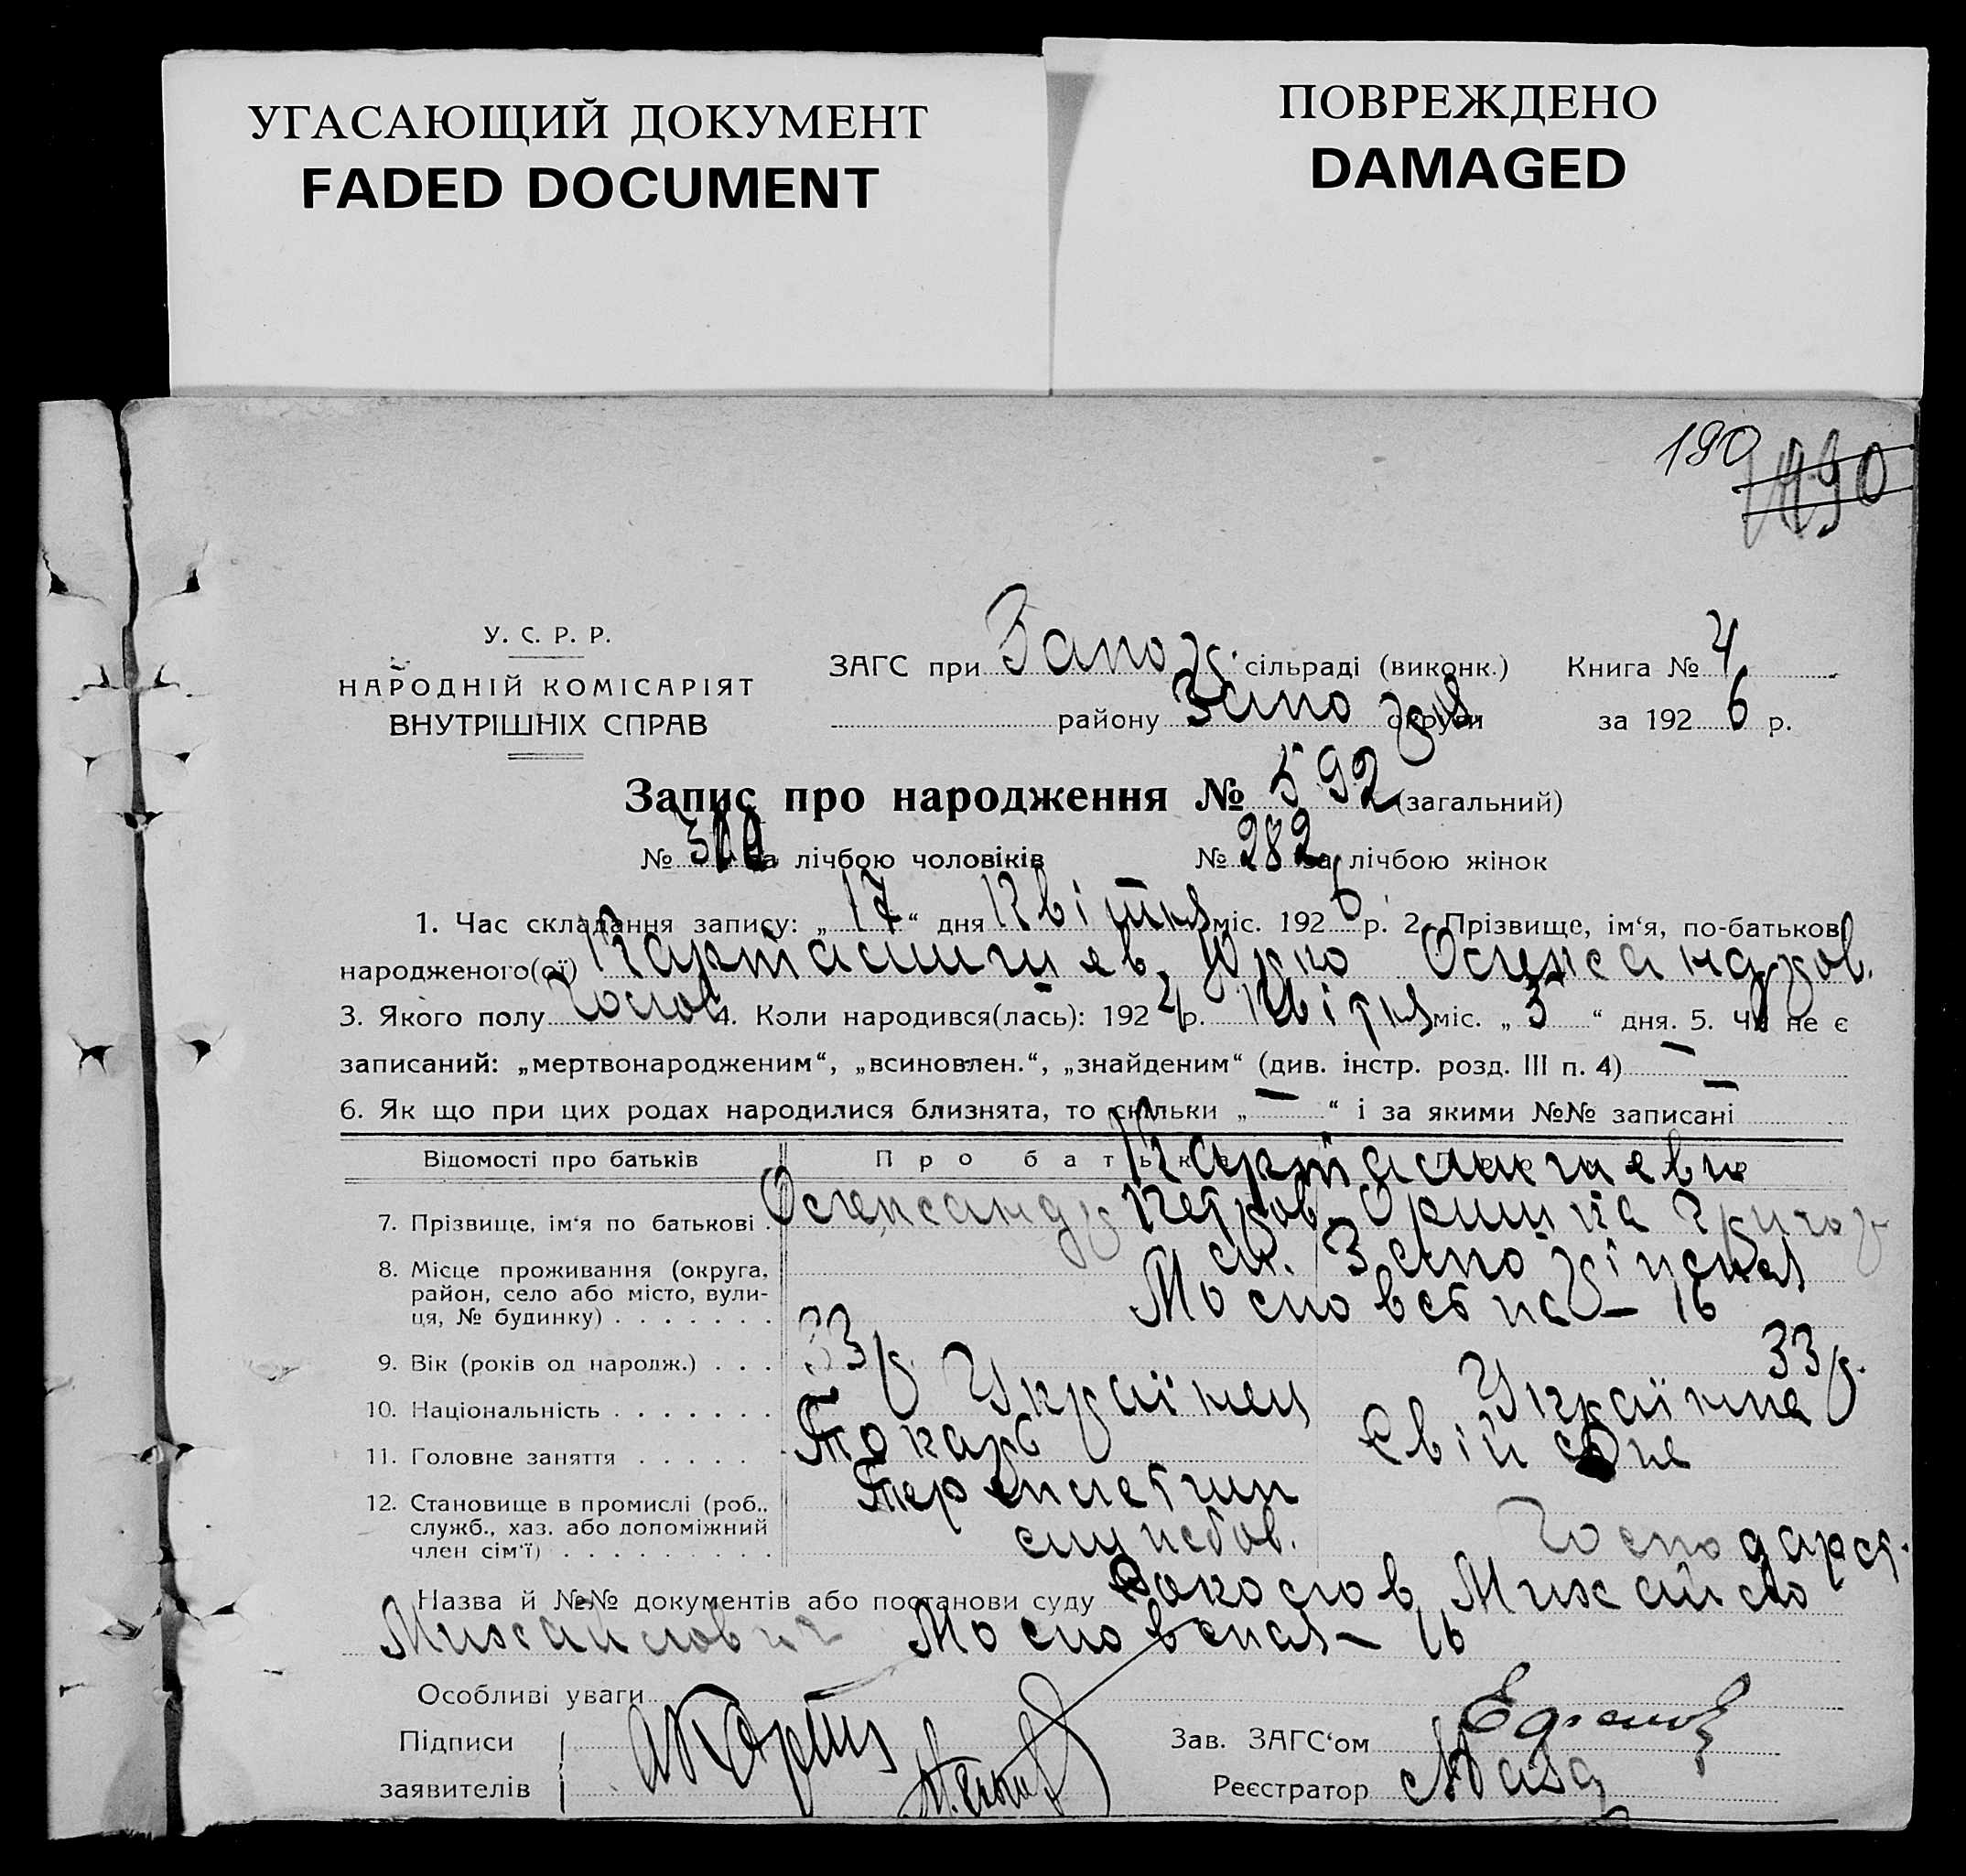 УГАСАЮЩИЙ ДОКУМЕНТ
FADED DOCUMENT
ПОВРЕЖДЕНО
DAMAGED
190
У. С. Р. Р.
НАРОДНІЙ КОМІСАРІЯТ
ВНУТРІШНІХ СПРАВ
ЗАГС при Запоз. сільраді (виконк.) Книга № 4
району Запо округи за 192 6 р.
Запис про народження № 592 (загальний)
№ за лічбою чоловіків № 282 за лічбою жінок
1. Час складання запису: „ 17 “ дня Квітня міс. 192 6 р. 2. Прізвище, ім‘я, по-батькові
народженого(ої) Карташишев Юрко Олександров.
3. Якого полу Чолов 4. Коли народився(лась): 192 4 р. Квітня міс. „ 3 “ дня. 5. Чи не є
записаний: „мертвонародженим“, „всиновлен.“, „знайденим“ (див. інстр. розд. III п. 4) —
6. Як що при цих родах народилися близнята, то скільки „ — “ і за якими №№ записані —
Відомості про батьків Про батька
7. Прізвище, ім‘я по батькові . Олександр Петров. Оришка Григор
8. Місце проживання (округа, ст. Запоріжська
район, село або місто, вули-
ця, № будинку) . . . . . . . Московська – 16
9. Вік (років од народж.) . . . 33 р. 33 р.
10. Національність . . . . . . . Українец Українка
11. Головне заняття . . . . . Токарь
12. Становище в промислі (роб.,
служб., хаз. або допоміжний
член сім‘ї) . . . . . . . . . службов. Господарст.
Назва й №№ документів або постанови суду Соколов Михайло
Михайлович Московская – 16
Особливі уваги
Підписи
заявителів
Зав. ЗАГС‘ом
Реєстратор